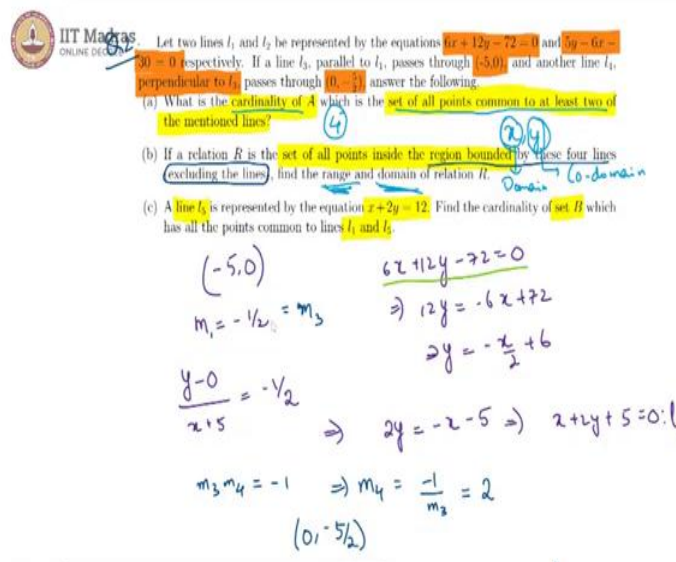 IIT Madras
ONLINE DEGREE
Q2. Let two lines l₁ and l₂ be represented by the equations 6x + 12y − 72 = 0 and 5y − 6x −
30 = 0 respectively. If a line l₃, parallel to l₁, passes through (-5,0), and another line l₄,
perpendicular to l₃, passes through (0, −5/2), answer the following.
(a) What is the cardinality of A which is the set of all points common to at least two of
the mentioned lines?
4
(x, y)
(b) If a relation R is the set of all points inside the region bounded by these four lines
(excluding the lines), find the range and domain of relation R.
Domain Co-domain
(c) A line l₅ is represented by the equation x+2y = 12. Find the cardinality of set B which
has all the points common to lines l₁ and l₅.
(-5,0)
6x+12y-72=0
m₁ = -1/2 = m₃
⇒ 12y = -6x+72
2y = -x/2 +6
y-0/x+5 = -1/2
⇒ 2y = -x-5 ⇒ x+2y+5=0:
m₃m₄ = -1 ⇒ m₄ = -1/m₃ = 2
(0,-5/2)